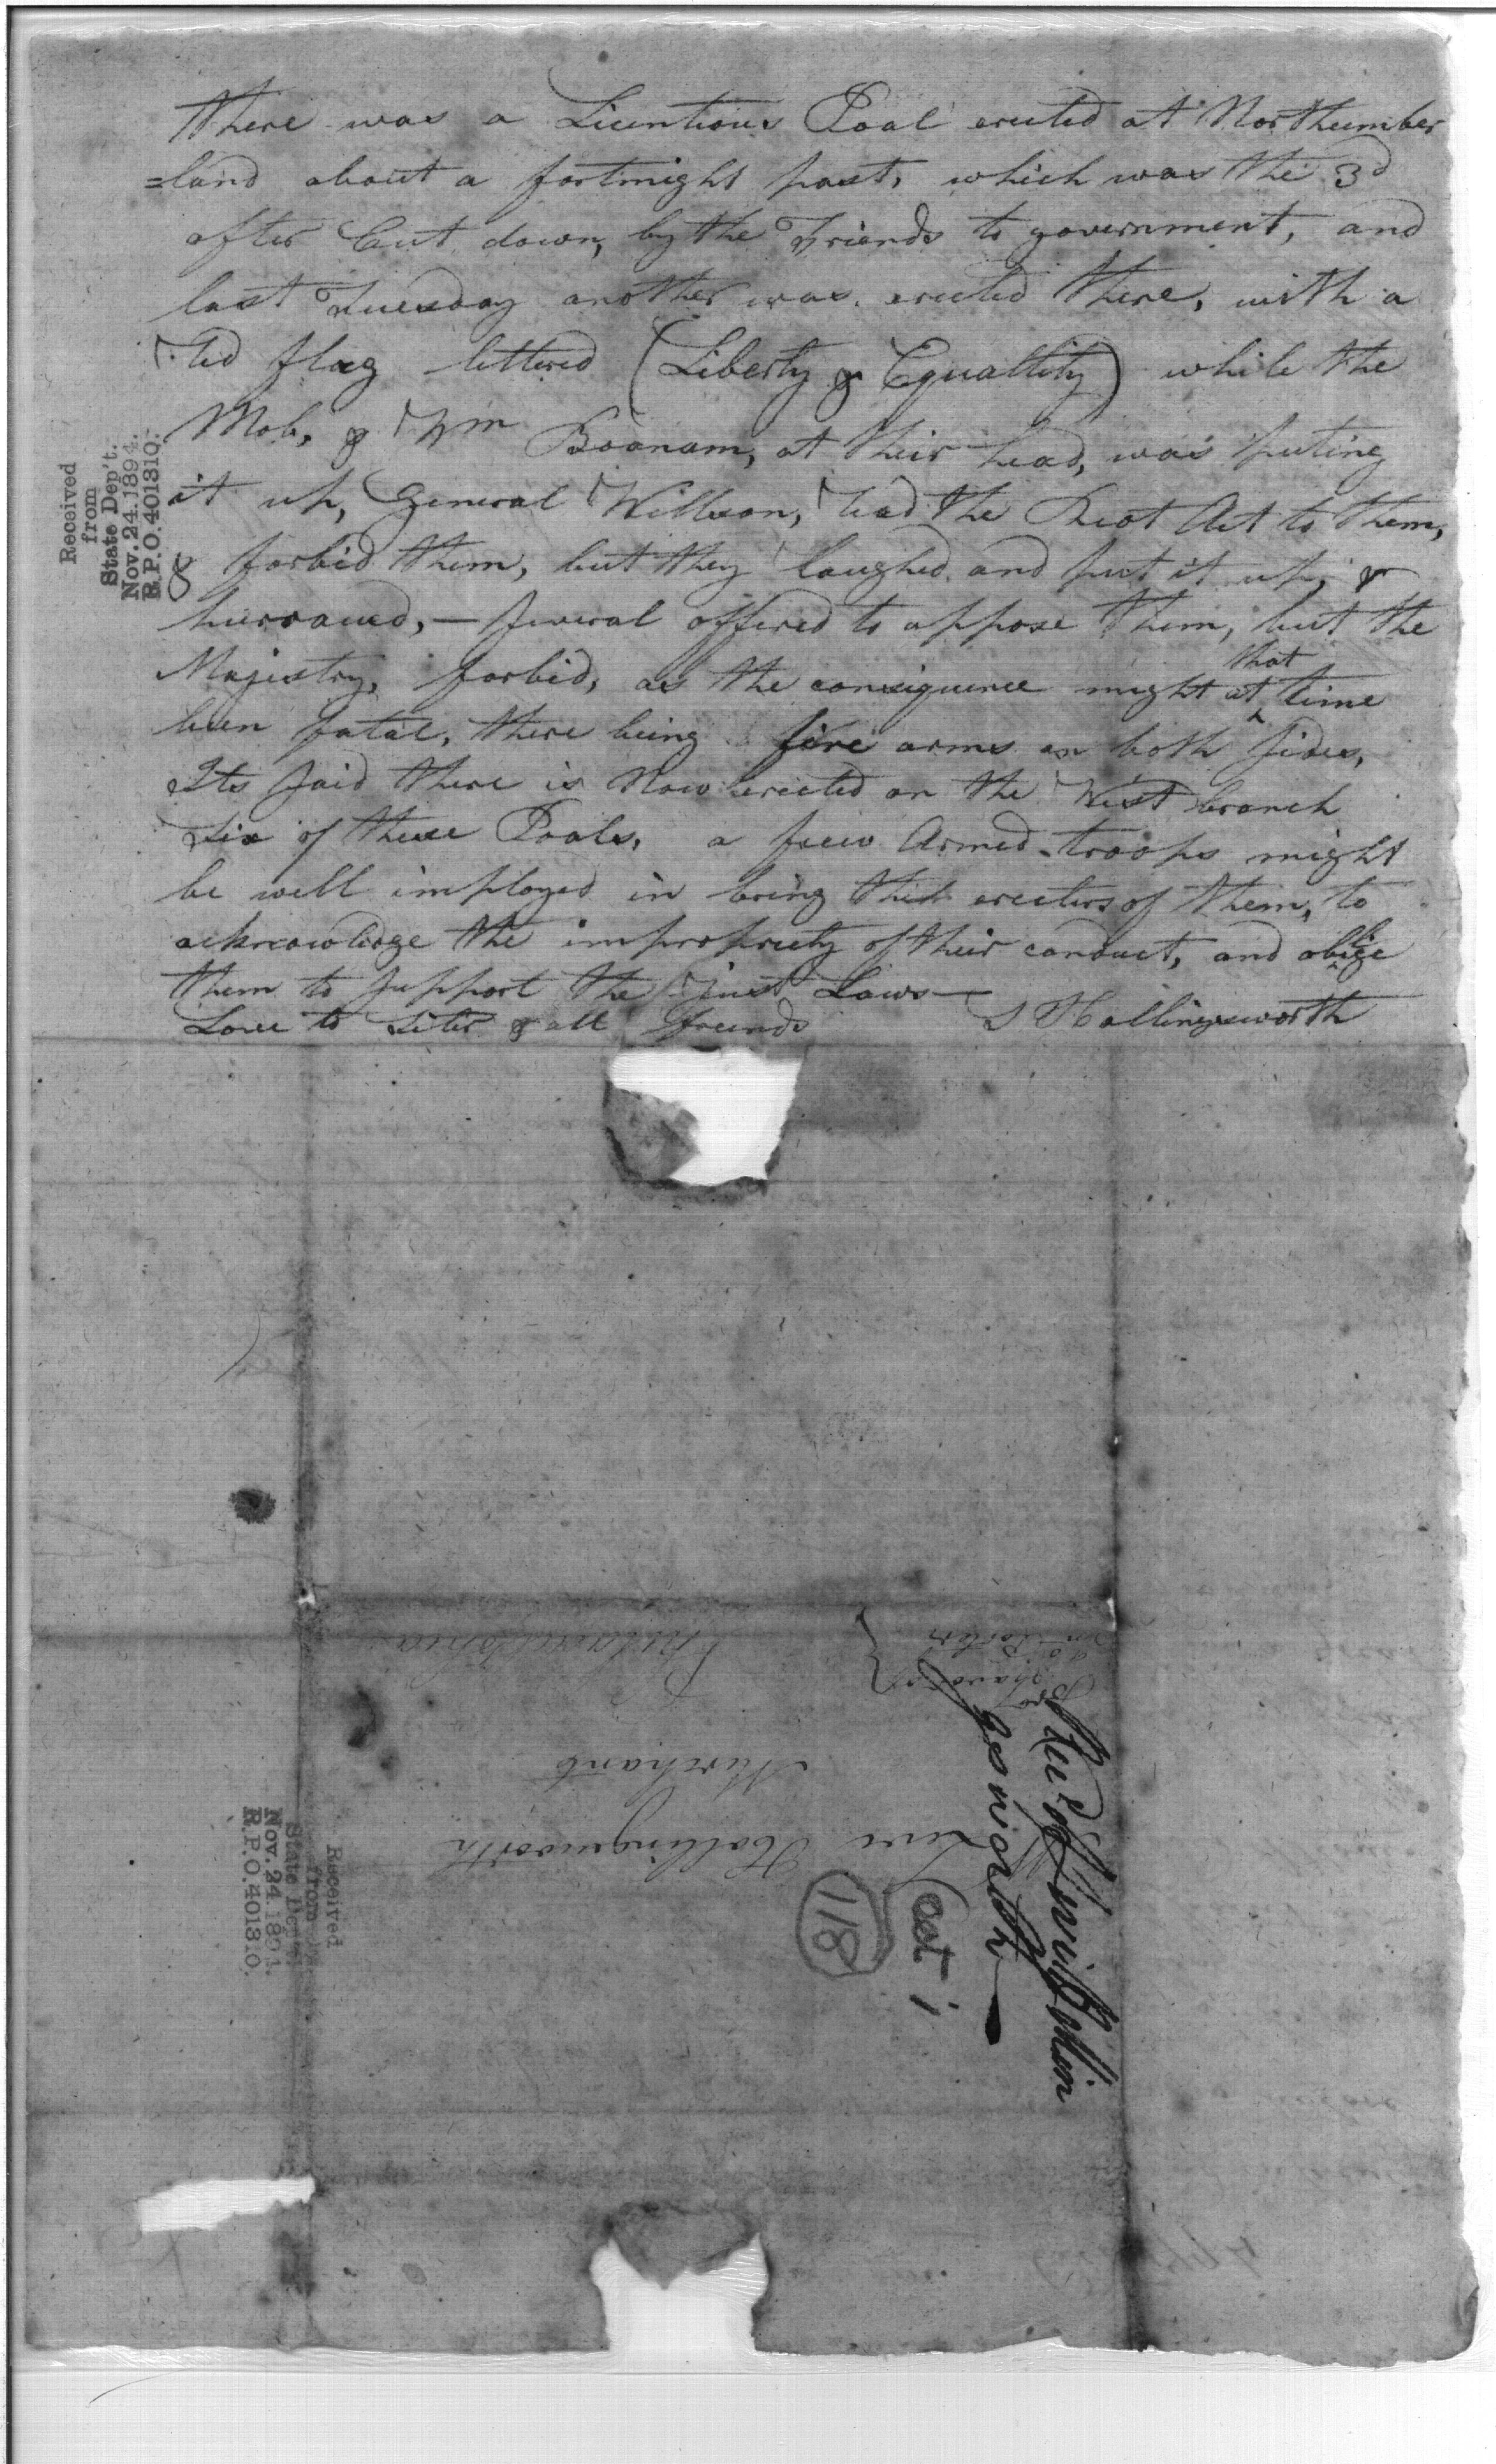 There was a Licentious Poal erected at Northumber
=land about a fortnight past, which was the 3d
after Cut down, by the Friends to government, and
last Tuesday another was erected there, with a
red flag lettered (Liberty & Equallity) while the
Mob, & Wm Boanam, at their head, was puting
it up, General Willson, read the Riot Act to them,
& forbid them, but they laughed and put it up, &
hurraued, — several offered to appose them, but the
Majestry, forbid, as the consequence might at that time
been fatal, there being fire arms on both sides,
Its said there is now erected on the West branch
six of these Poals, a few Armed troops might
be well imployed in bring their erecters of them, to
acknowledge the impropriety of their conduct, and oblige
them to support the Just Laws —
Love to Sister & all friends S Hollingsworth
Received
from
State Dep't.
Nov. 24. 1894.
R.P.O. 401310.
Levi Hollingsworth
Merchant
Philadelphia
Oct 1
118
Received
from
State Dep't.
Nov. 24. 1894.
R.P.O. 401310.